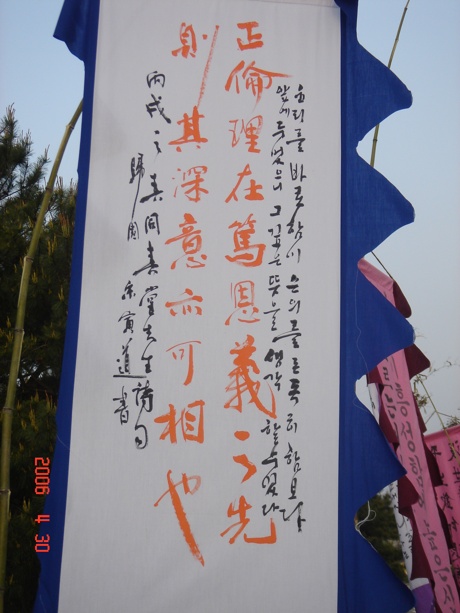 윤리를 바로함이 은의를 함보다
앞에 두었으니 그 깊은 뜻을 생각 할수있다
正倫理在篤恩義之先
則其深意亦可相也
丙戌之春同春堂先生詩句
歸園 宋寅道書
2006 4 30